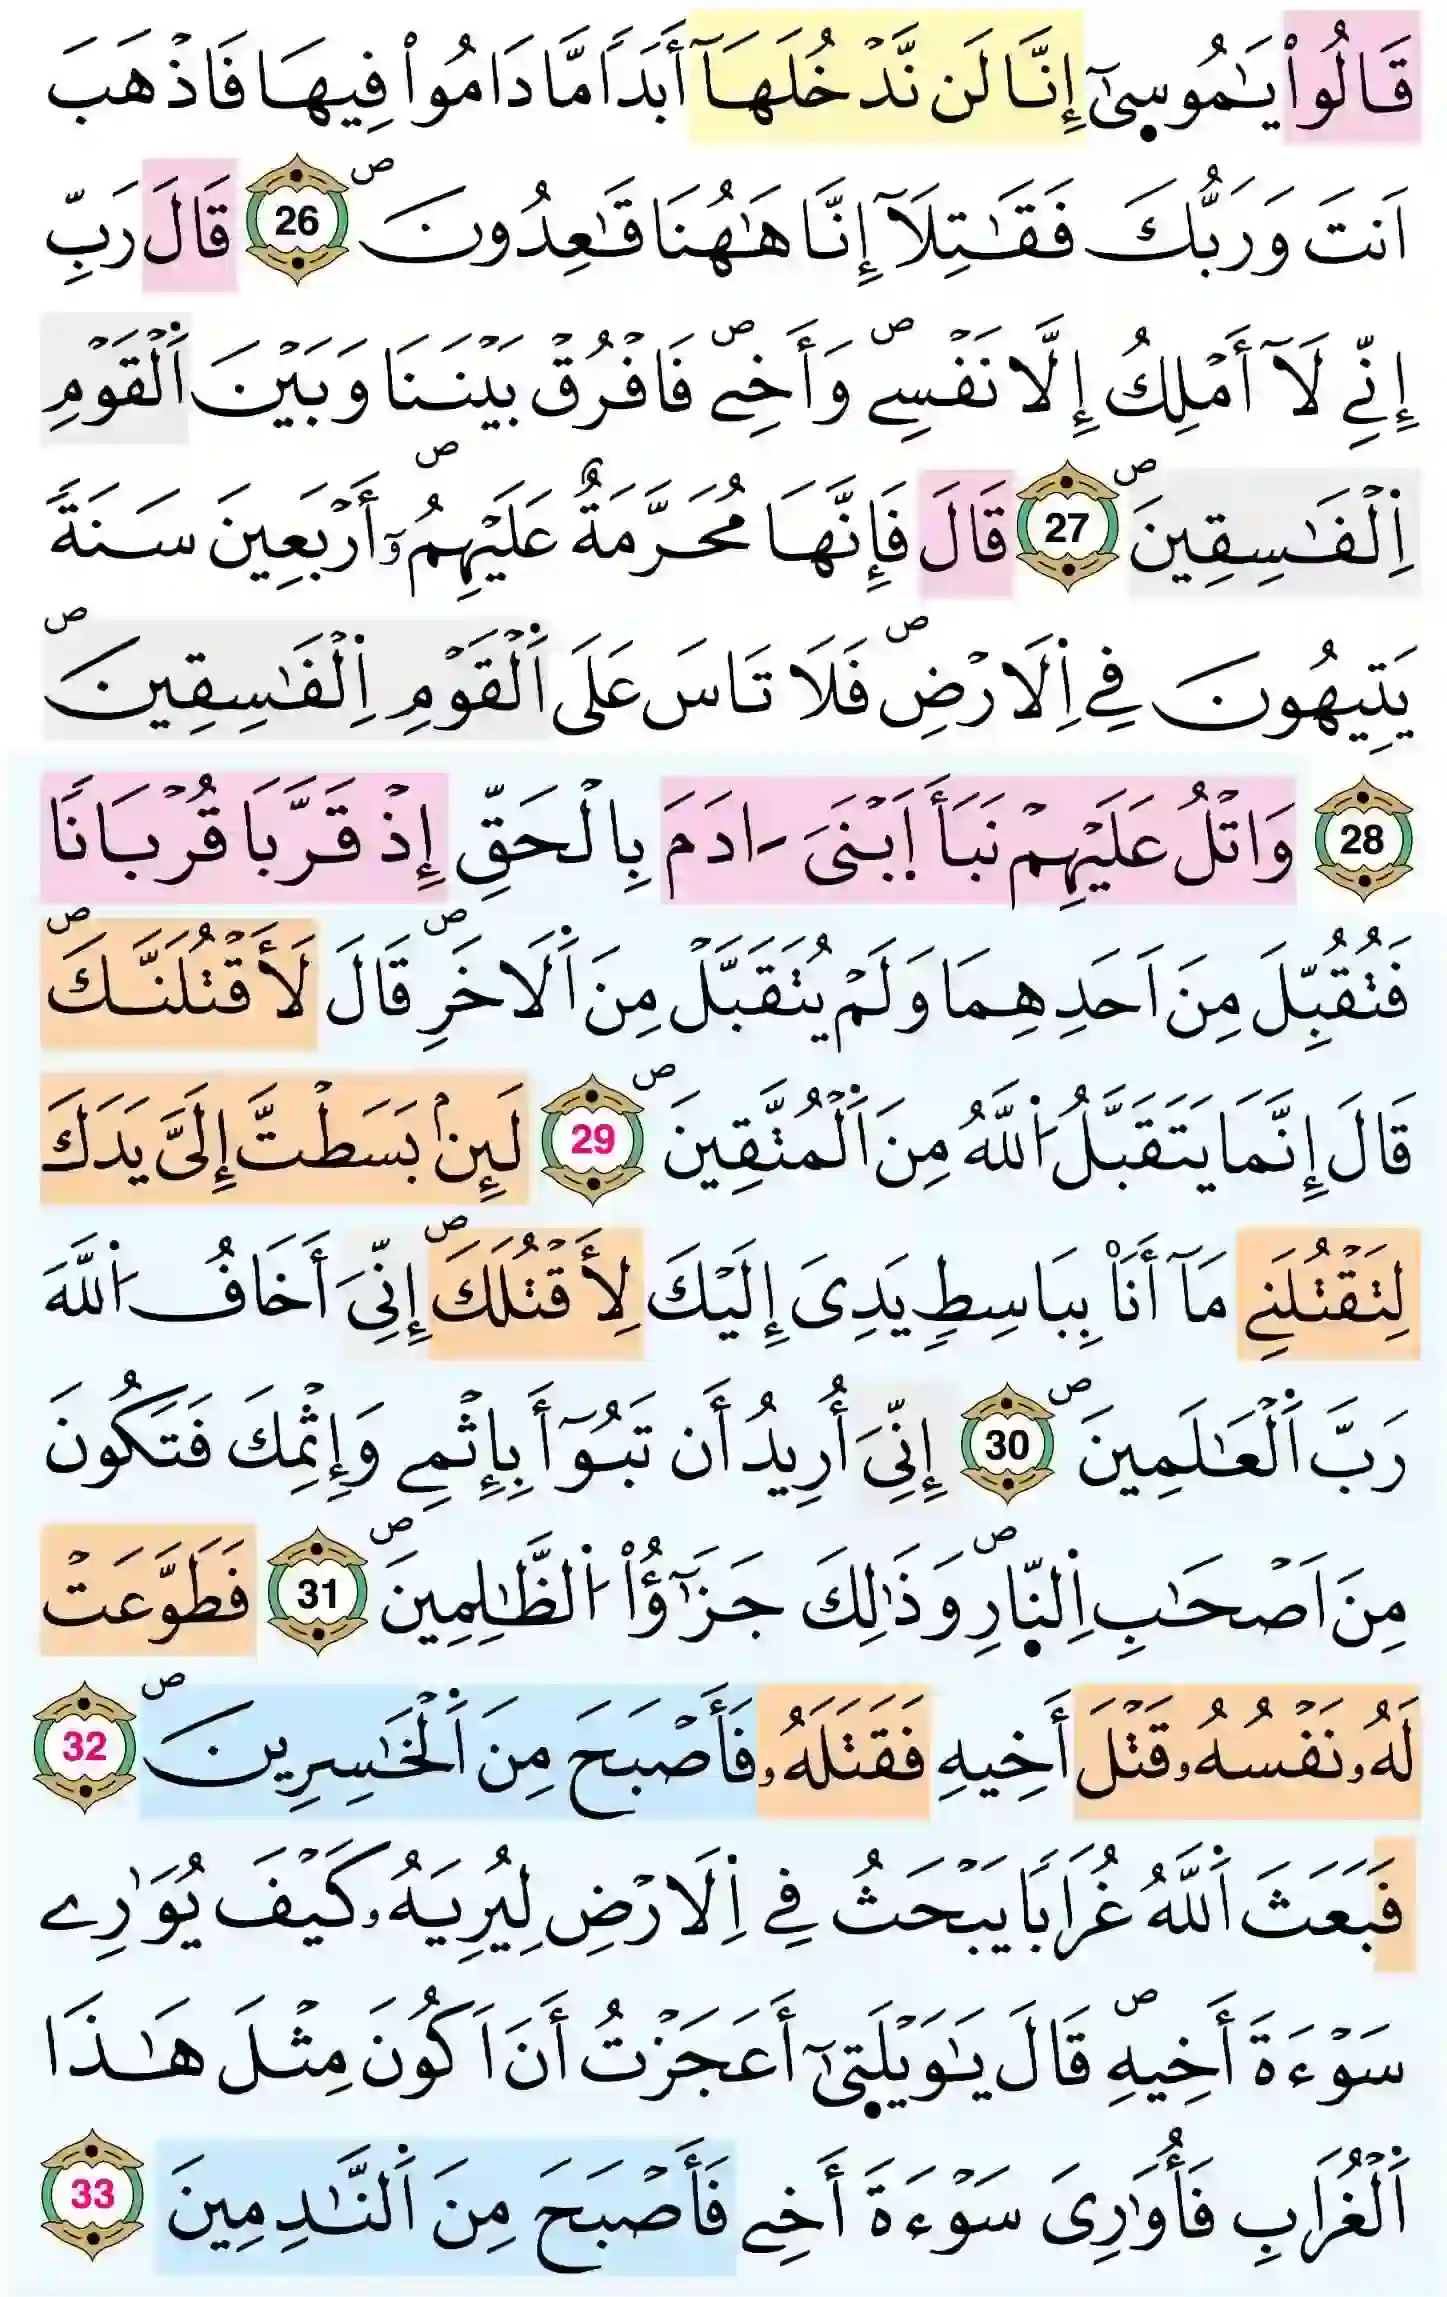 قَالُواْ يَٰمُوسِىٰٓ إِنَّا لَن نَّدْخُلَهَآ أَبَداٗ مَّا دَامُواْ فِيهَا فَاذْهَبَ
اَنتَ وَرَبُّكَ فَقَٰتِلَآ إِنَّا هَٰهُنَا قَٰعِدُونَۖ 26 قَالَ رَبِّ
إِنِّے لَآ أَمْلِكُ إِلَّا نَفْسِےۖ وَأَخِےۖ فَافْرُقْ بَيْنَنَا وَبَيْنَ اَ۬لْقَوْمِ
اِ۬لْفَٰسِقِينَۖ 27 قَالَ فَإِنَّهَا مُحَرَّمَةٌ عَلَيْهِمُۥٓۖ أَرْبَعِينَ سَنَةٗ
يَتِيهُونَ فِے اِ۬لَارْضِۖ فَلَا تَاسَ عَلَى اَ۬لْقَوْمِ اِ۬لْفَٰسِقِينَۖ
28 وَاتْلُ عَلَيْهِمْ نَبَأَ اَ۪بْنَىَ ءَادَمَ بِالْحَقِّ إِذْ قَرَّبَا قُرْبَاناٗ
فَتُقُبِّلَ مِنَ اَحَدِهِمَا وَلَمْ يُتَقَبَّلْ مِنَ اَ۬لَاخَرِۖ قَالَ لَأَقْتُلَنَّكَۖ
قَالَ إِنَّمَا يَتَقَبَّلُ اُ۬للَّهُ مِنَ اَ۬لْمُتَّقِينَۖ 29 لَئِنۢ بَسَطتَّ إِلَىَّ يَدَكَ
لِتَقْتُلَنِے مَآ أَنَا۠ بِبَاسِطٖ يَدِىَ إِلَيْكَ لِأَقْتُلَكَۖ إِنِّىَ أَخَافُ اُ۬للَّهَ
رَبَّ اَ۬لْعَٰلَمِينَۖ 30 إِنِّىَ أُرِيدُ أَن تَبُوٓأَ بِإِثْمِے وَإِثْمِكَ فَتَكُونَ
مِنَ اَصْحَٰبِ اِ۬لنّ۪ارِۖ وَذَٰلِكَ جَزَٰٓؤُاْ اُ۬لظَّٰلِمِينَۖ 31 فَطَوَّعَتْ
لَهُۥ نَفْسُهُۥ قَتْلَ أَخِيهِ فَقَتَلَهُۥ فَأَصْبَحَ مِنَ اَ۬لْخَٰسِرِينَۖ 32
فَبَعَثَ اَ۬للَّهُ غُرَاباٗ يَبْحَثُ فِے اِ۬لَارْضِ لِيُرِيَهُۥ كَيْفَ يُوَٰرِے
سَوْءَةَ أَخِيهِۖ قَالَ يَٰوَيْلَت۪ىٰٓ أَعَجَزْتُ أَنَ اَكُونَ مِثْلَ هَٰذَا
اَ۬لْغُرَابِ فَأُوَٰرِىَ سَوْءَةَ أَخِے فَأَصْبَحَ مِنَ اَ۬لنَّٰدِمِينَ 33